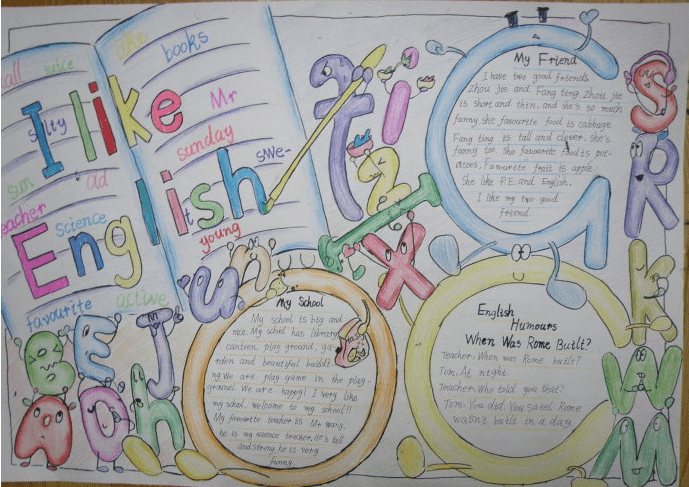 I like
English
like
books
call
juice
Mr
salty
sunday
swe-
sun
ad
teacher
science
young
favourite
active
My Friend
I have two good friends
Zhou jee and Fang ting Zhou jee
is short and thin. and she's so much
funny she favourite food is cabbage
Fang ting is tall and clever. She's
funny too. She favourite food is pot-
atoes, Favourite fruit is apple
She like P.E. and English.
I like my two good
friend.
My School
My school is big and
nice. My school has library
canteen play ground, ga-
rden and beautiful buildi-
ng We are play game in the play-
ground. We are happy! I very like
my school. welcome to my school!!
My favourite teacher is Mr Wang,
he is my science teacher. He's tall
and strong, he is very
funny.
English
Humours
When Was Rome Built?
Teacher: When was Rome built?
Tom: At night.
Teacher: Who told you that?
Tom: You did. You saied Rome
wasn't built in a day
S
R
K
W
M
t
i
z
I
X
G
u
n
B
E
J
A
O
h